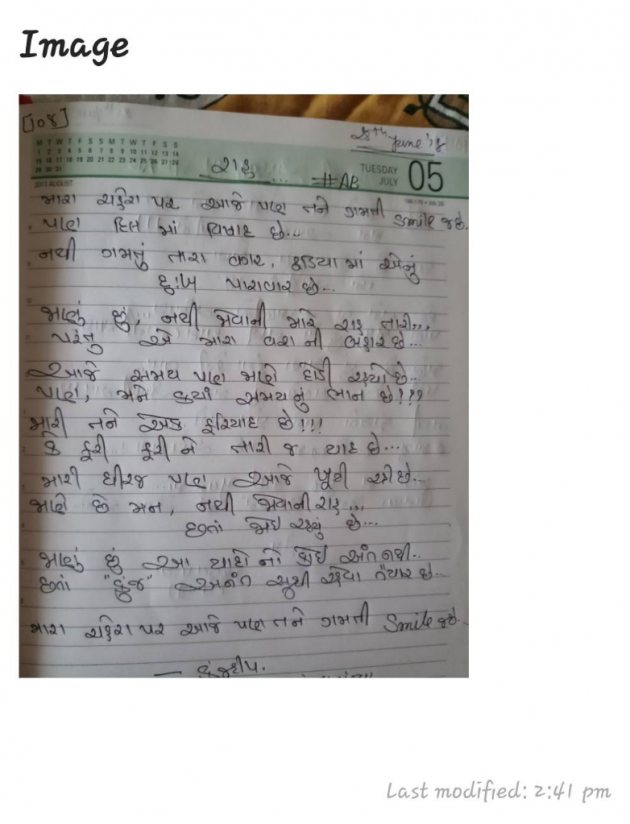 Image
[108]
28th June'18
રાહ
#AB
TUESDAY
JULY 05
2017 AUGUST
મારા ચહેરા પર આજે પણ તને ગમતી Smile જ છે.
પણ દિલ માં વિષાદ છે...
નથી ગમતું તારા વગર, હડિયા માં એનું
દુઃખ પારાવાર છે...
જાણું છું, નથી જોવાની મારે રાહ તારી...
પરંતુ એ મારા વશ ની બહાર છે...
આજે સમય પણ જાણે દોડી રહ્યો છે..
પણ, મને ક્યાં સમય નું ભાન છે!!!
મારી તને એક ફરિયાદ છે!!!
કે ફરી ફરી ને તારી જ યાદ છે...
મારી ધીરજ પણ આજે ખૂટી રહી છે..
જાણે છે મન, નથી જોવાની રાહ...
છતાં જોઈ રહ્યું છે...
જાણું છું આ યાદો નો કોઈ અંત નથી..
છતાં "કુંજ" અનંત સુધી રહેવા તૈયાર છે..
મારા ચહેરા પર આજે પણ તને ગમતી Smile જ છે..
— કુંજદીપ.
Last modified: 2:41 pm